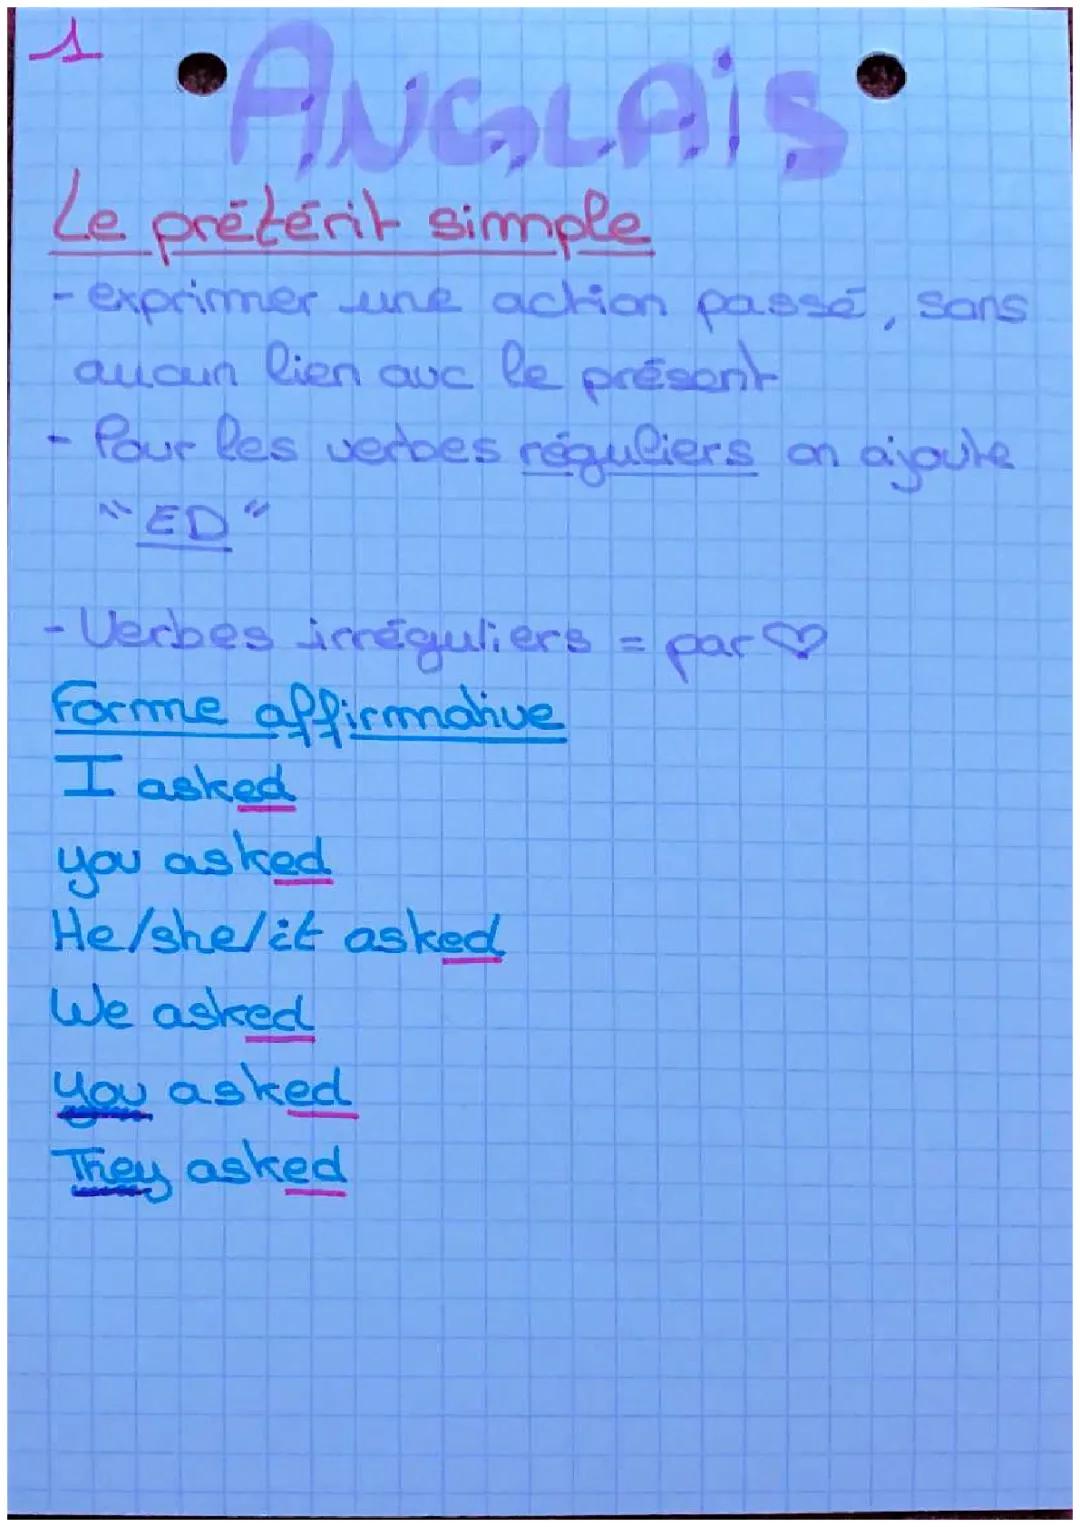 1
ANGLAIS
Le prétérit simple
- exprimer une action passé, sans
aucun lien avc le présent
- Pour les verbes réguliers on ajoute
"ED"
- Verbes irréguliers = par ♡
Forme affirmative
I asked
you asked
He/she/it asked
We asked
you asked
They asked